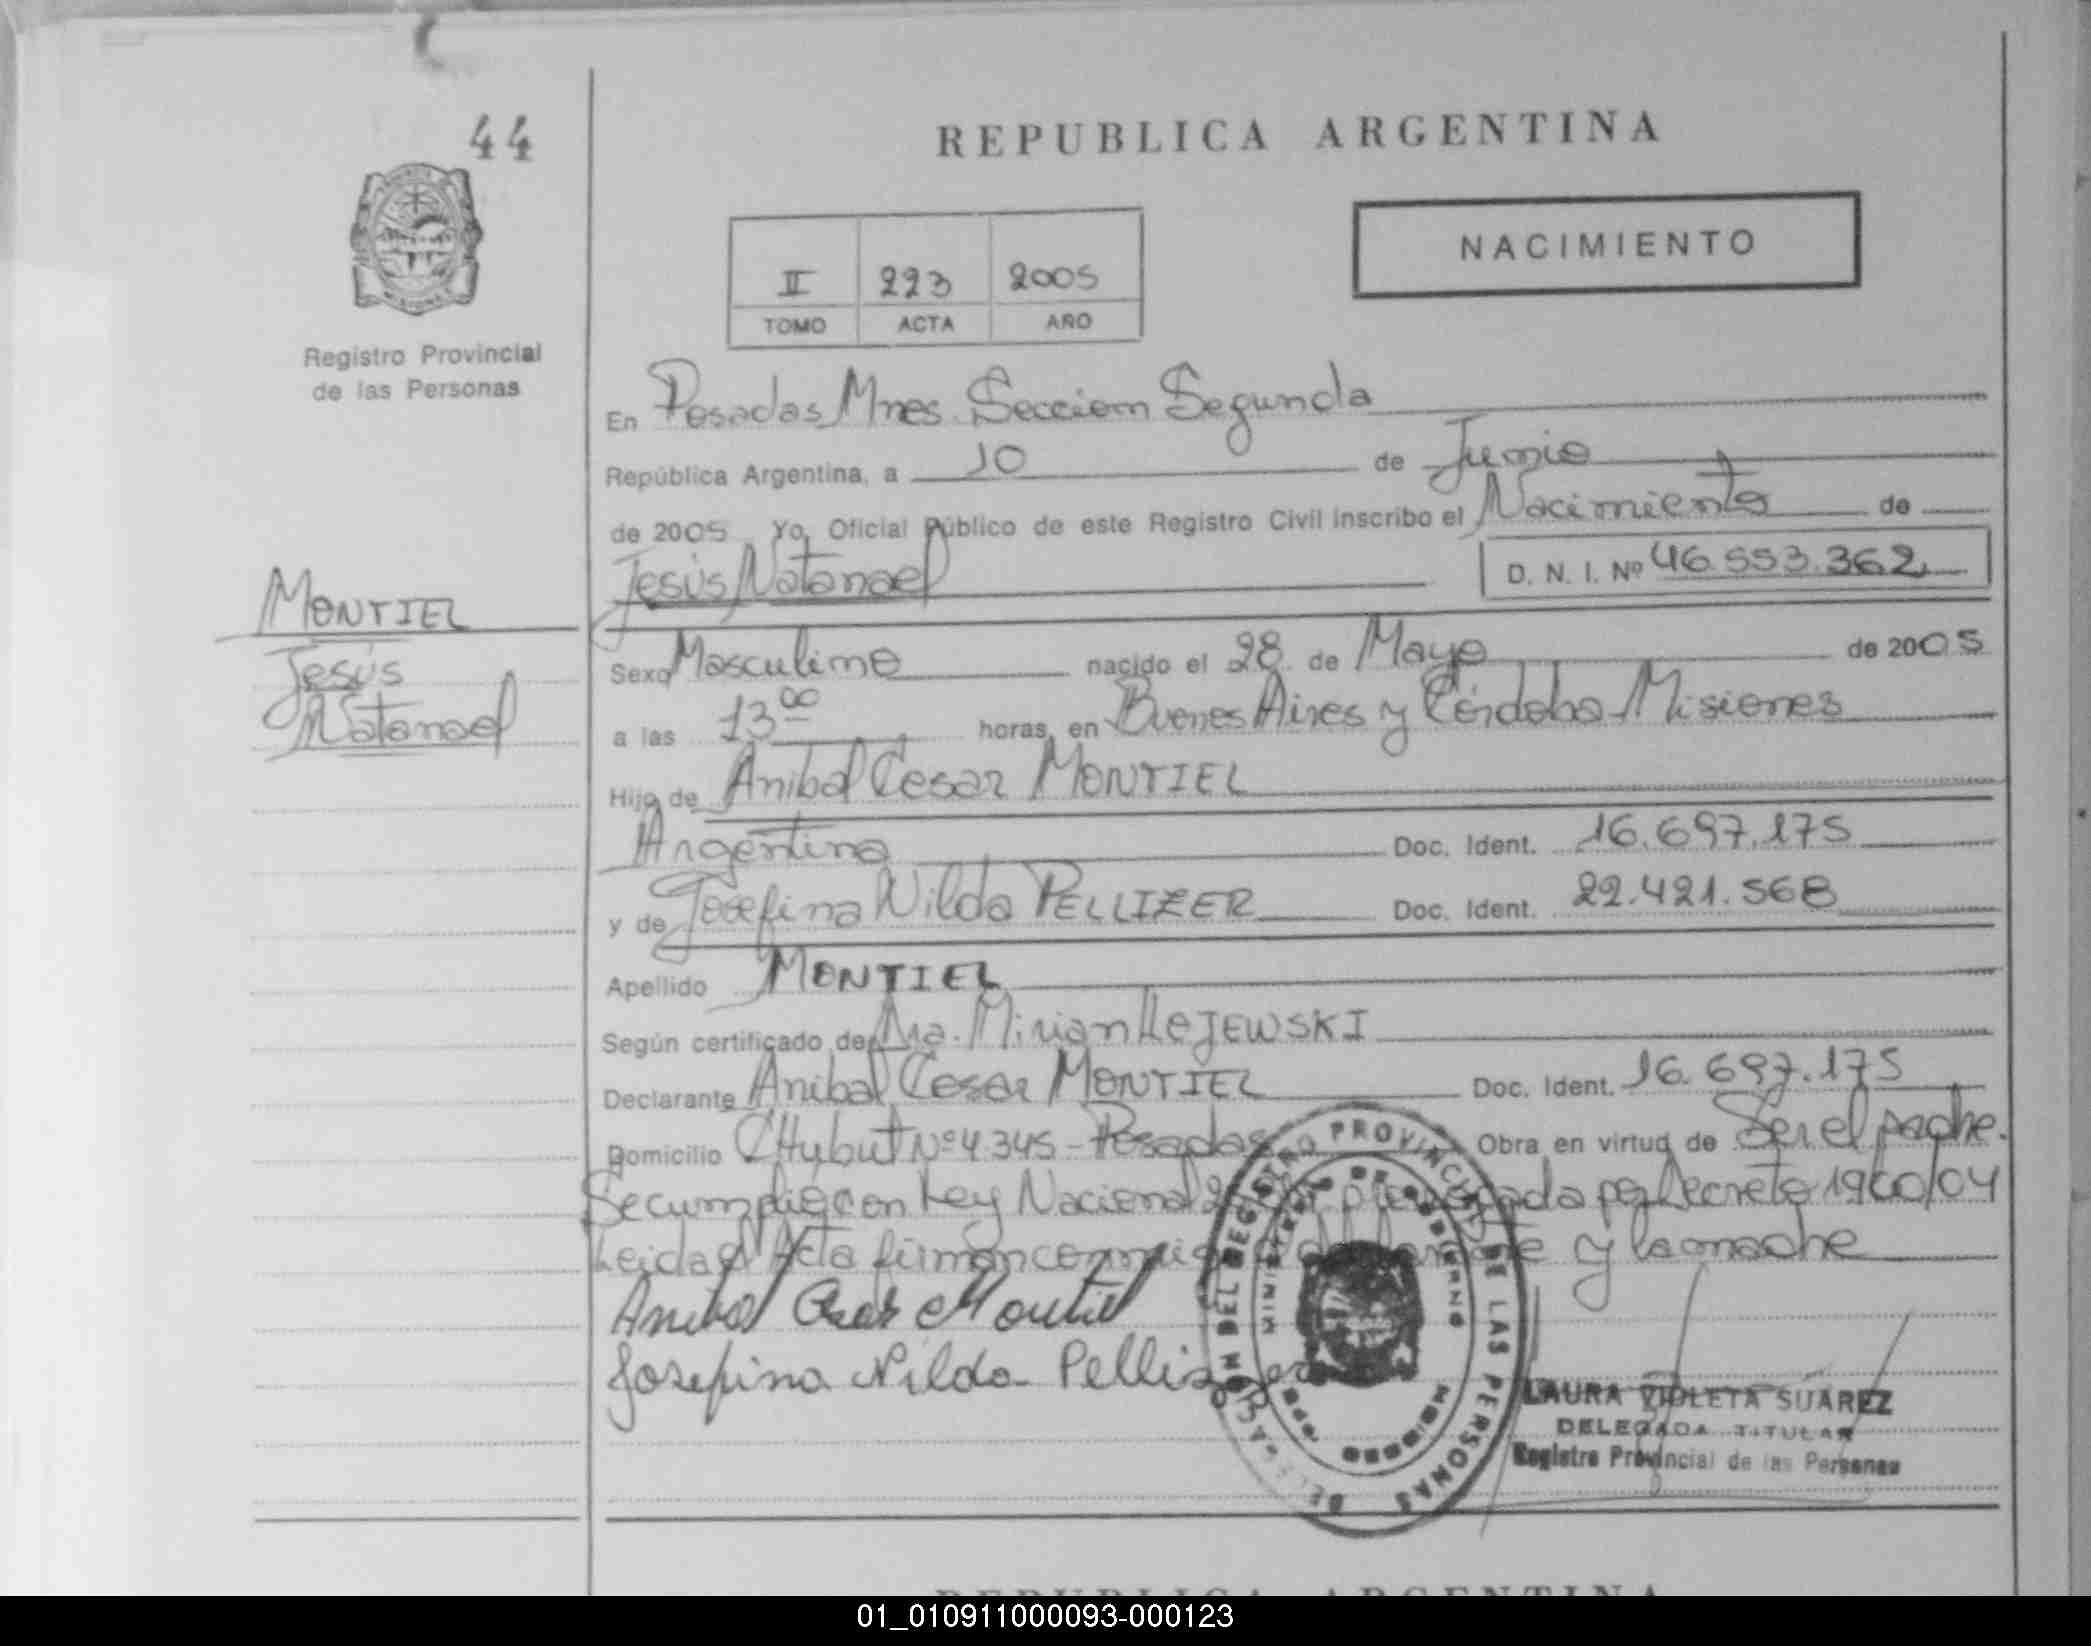 44
REPUBLICA ARGENTINA
NACIMIENTO
II 223 2005
TOMO ACTA AÑO
Registro Provincial
de las Personas
En Posadas Mnes. Sección Segunda
República Argentina, a 10 de Junio
de 2005 Yo, Oficial Público de este Registro Civil inscribo el Nacimiento de
Jesús Natanael D. N. I. Nº 46.553.362
MONTIEL
Jesús
Natanael
Sexo Masculino nacido el 28 de Mayo de 2005
a las 13 00 horas, en Buenos Aires y Córdoba Misiones
Hijo de Anibal Cesar MONTIEL
Argentina Doc. Ident. 16.697.175
y de Josefina Nilda PELLIZER Doc. Ident. 22.421.568
Apellido MONTIEL
Según certificado de Dra. Mirian LEJEWSKI
Declarante Anibal Cesar MONTIEL Doc. Ident. 16.697.175
Domicilio CHubut Nº 4345 - Posadas Obra en virtud de Ser el padre.
Se cumplió con Ley Nacional por Decreto 1960/04
Leida el Acta firman conmigo y la madre
Anibal Cesar Montiel
Josefina Nilda Pellizer
DELEGACION DEL REGISTRO PROVINCIAL DE LAS PERSONAS
MINISTERIO DE GOBIERNO
LAURA VIOLETA SUAREZ
DELEGADA TITULAR
Registro Provincial de las Personas
REPUBLICA ARGENTINA
01_010911000093-000123